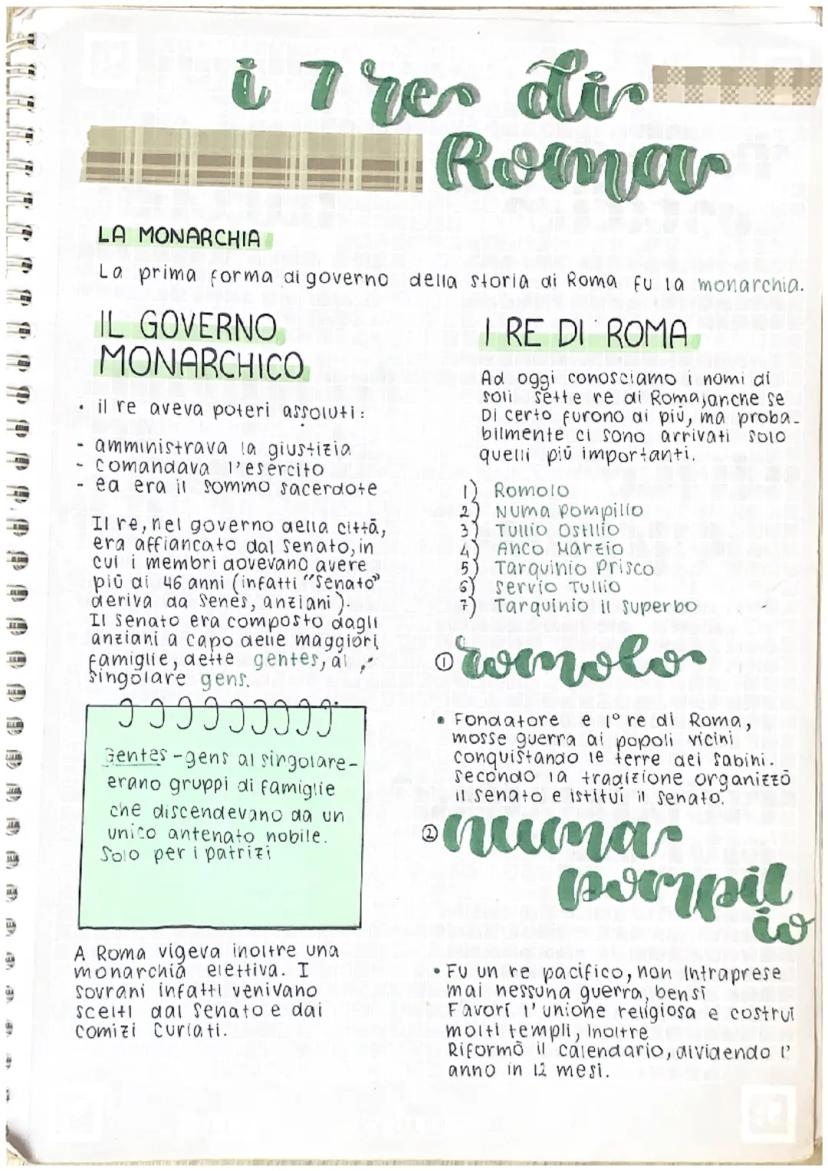 i 7 re di
Roma
LA MONARCHIA
La prima forma di governo della storia di Roma fu la monarchia.
IL GOVERNO
MONARCHICO
• il re aveva poteri assoluti:
- amministrava la giustizia
- comandava l'esercito
- ed era il sommo sacerdote
Il re, nel governo della città,
era affiancato dal Senato, in
cui i membri dovevano avere
più di 46 anni (infatti "Senato"
deriva da Senes, anziani).
Il Senato era composto dagli
anziani a capo delle maggiori
famiglie, dette gentes, al
singolare gens.
Gentes - gens al singolare -
erano gruppi di famiglie
che discendevano da un
unico antenato nobile.
Solo per i patrizi
A Roma vigeva inoltre una
monarchia elettiva. I
sovrani infatti venivano
scelti dal Senato e dai
comizi curiati.
I RE DI ROMA
Ad oggi conosciamo i nomi di
soli sette re di Roma, anche se
Di certo furono di più, ma proba-
bilmente ci sono arrivati solo
quelli più importanti.
1) Romolo
2) Numa Pompilio
3) Tullio Ostilio
4) Anco Marzio
5) Tarquinio Prisco
6) Servio Tullio
7) Tarquinio il Superbo
① romolo
• Fondatore e 1° re di Roma,
mosse guerra ai popoli vicini
conquistando le terre dei Sabini.
Secondo la tradizione organizzò
il senato e istituì il Senato.
② numa
pompil
io
• Fu un re pacifico, non intraprese
mai nessuna guerra, bensì
Favorì l'unione religiosa e costruì
molti templi, Inoltre
Riformò il calendario, dividendo l'
anno in 12 mesi.